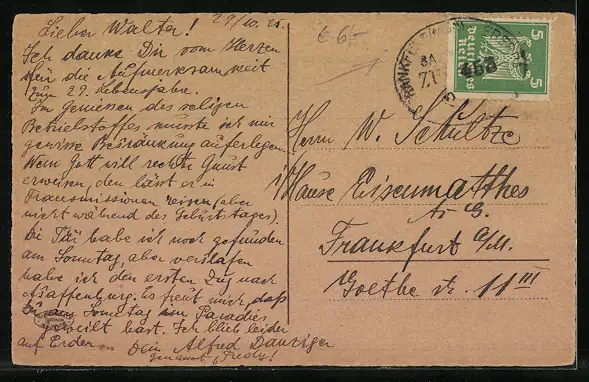 29/10. 25.
Lieber Walter!
Ich danke Dir vom Herzen
für die Aufmerksamkeit
zum 29. Lebensjahre.
Im Geniessen des seligen
Betriebsstoffes musste ich mir
gewisse Beschränkung auferlegen.
Wem Gott will rechte Gunst
erweisen, den lässt er in
Transmissionen reisen (aber
nicht während des Geburtstages).
Die Tür habe ich noch gefunden
am Sonntag, aber verschlafen
habe ich den ersten Zug nach
Aschaffenburg. Es freut mich, daß
Du am Sonntag im Paradies
geweilt hast. Ich blieb leider
auf Erden. Dein Alfred Danziger
genannt „Fredy!
€ 6,-
FRANKFURT
5 5
Deutsches Reich
Herrn W. Schultze
i/Hause Eisenmatthes
A. G.
Frankfurt a/M.
Goethe str. 11 III